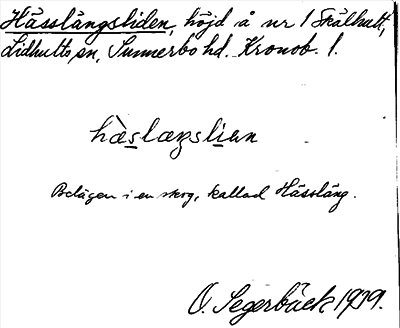 Hässlängsliden, höjd å nr 1 Skälhult,
Lidhults sn, Sunnerbo hd. Kronob. l.
hàslæŋslian
Belägen i en skog, kallad Hässläng.
O. Segerbäck 1939.